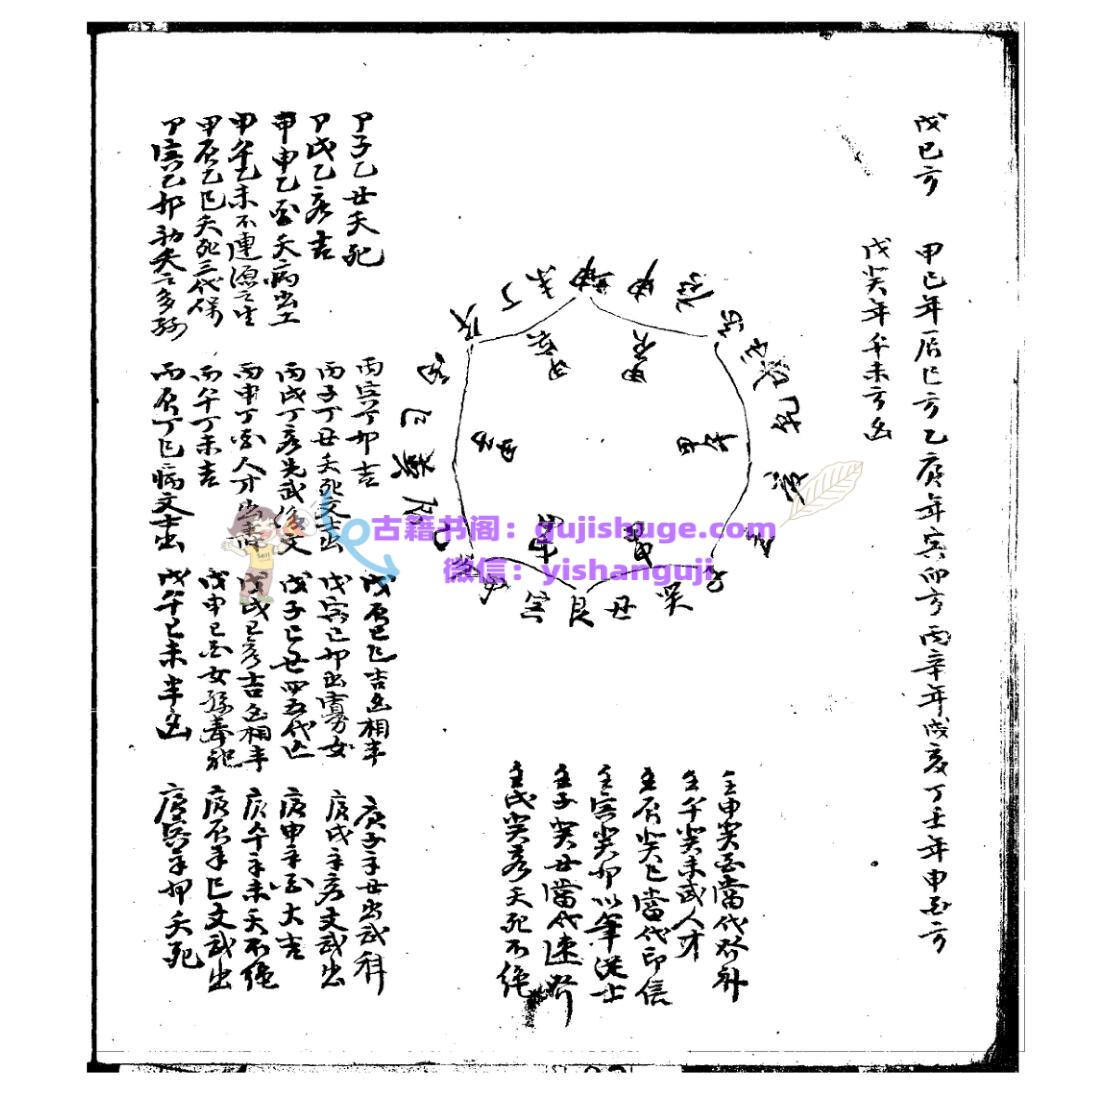 戊己方　甲己年辰巳方乙庚年寅卯方丙辛年戌亥丁壬年申酉方
戊癸年午未方凶
坤
申
庚
戌
乾
亥
壬
子
癸
丑
艮
寅
甲
卯
乙
辰
巽
巳
丙
午
丁
未
甲子
甲寅
甲辰
甲午
甲申
甲戌
壬申癸酉當代
壬午癸未武人才
壬辰癸巳當代印信
壬寅癸卯以筆從士
壬子癸丑當代速
壬戌癸亥夭死不绝
甲子乙丑夭死
甲戌乙亥吉
甲申乙酉夭病出
甲午乙未不連
甲辰乙巳夭死三代保
甲寅乙卯
丙寅丁卯吉
丙子丁丑夭死文吉出
丙戌丁亥先武後文
丙申丁酉人才出
丙午丁未吉
丙辰丁巳病文吉出
戊辰己巳吉凶相半
戊寅己卯出寡女
戊子己丑四五代
戊戌己亥吉凶相半
戊申己酉女
戊午己未半凶
庚子辛丑出武科
庚戌辛亥文武出
庚申辛酉大吉
庚午辛未夭不绝
庚辰辛巳文武出
庚寅辛卯夭死
古籍书阁：gujishuge.com
微信：yishanguji